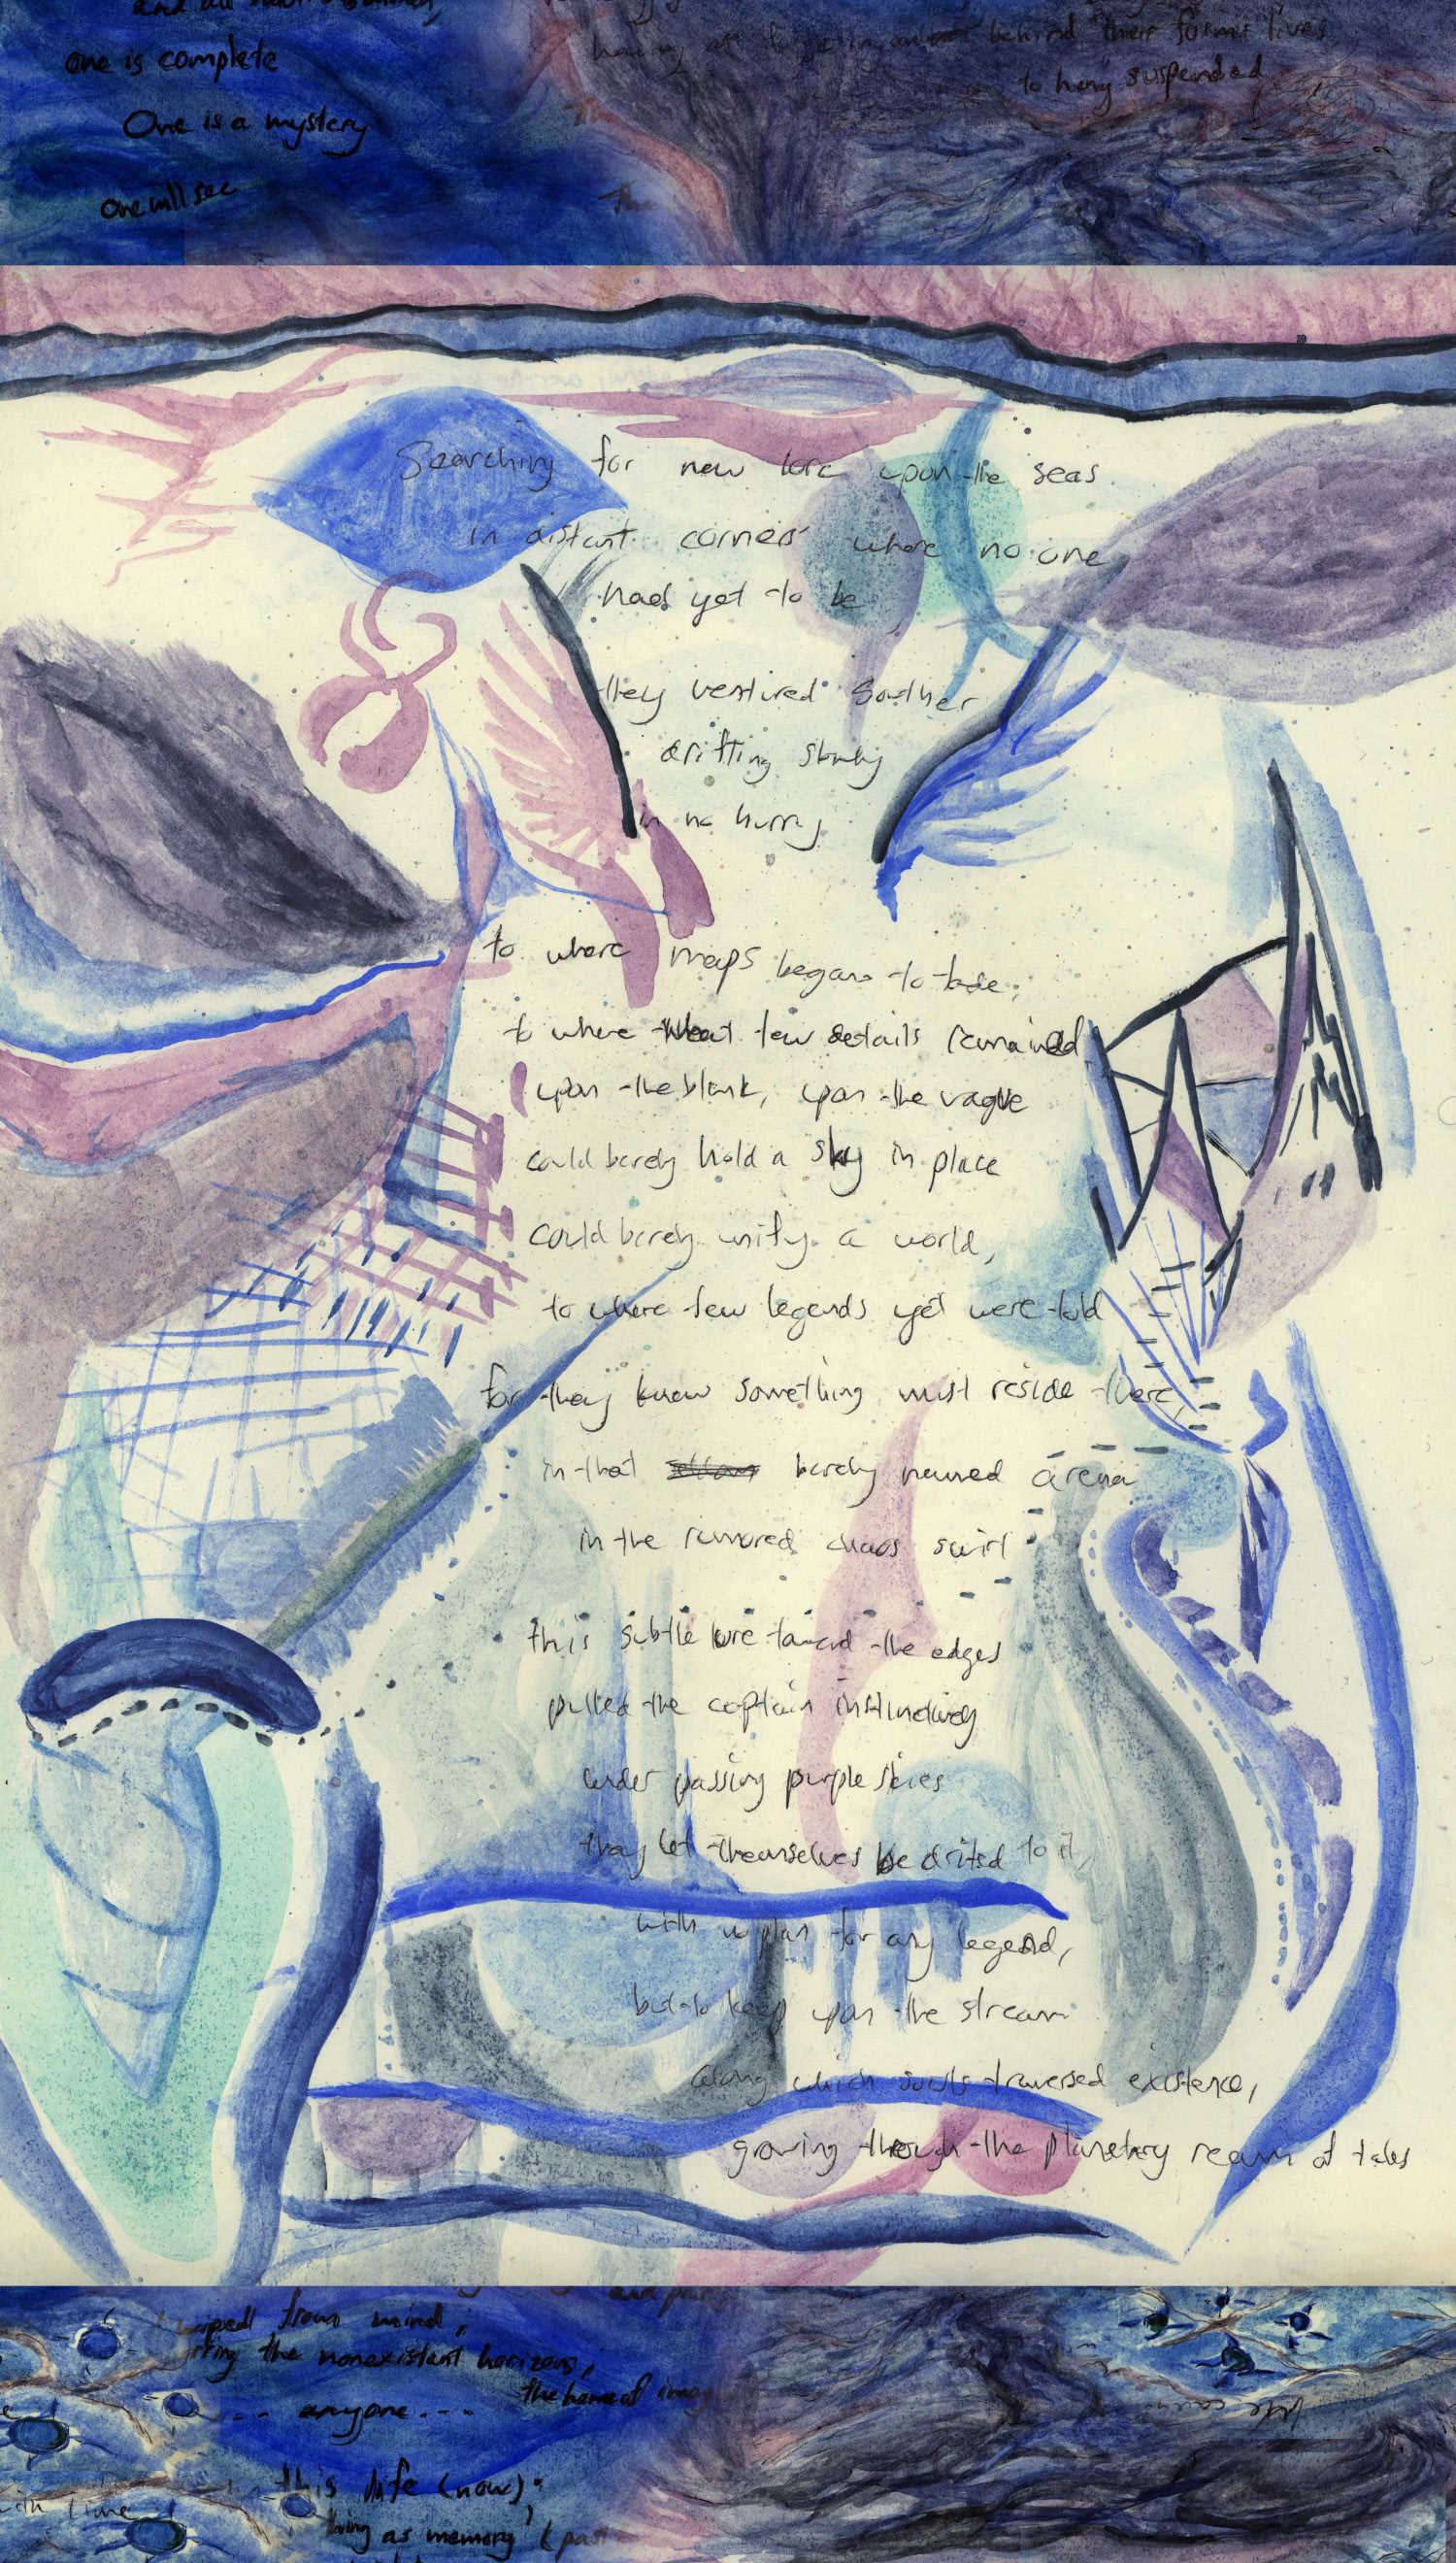 and all
one is complete
One is a mystery
One will see
having behind their former lives,
to hang suspended
The
The
Searching for new lore upon the seas
in distant corners where no one
had yet to be,
they ventured souther
drifting slowly
in no hurry
to where maps began to fade,
to where what few details remained
upon the blank, upon the vague
could barely hold a sky in place
could barely unify a world,
to where few legends yet were told
for they knew something must reside there,
in that barely named arena
in the rumored chaos swirl
this subtle lure toward the edges
pulled the captain instinctively
under passing purple skies
they let themselves be drifted to it,
with no plan for any legend,
but to keep upon the stream
along which souls traversed existence,
growing through the planetary realm of tales
and
wiped from mind,
the nonexistent horizons,
the home of
... anyone ...
this life (now);
as memory (past
with time